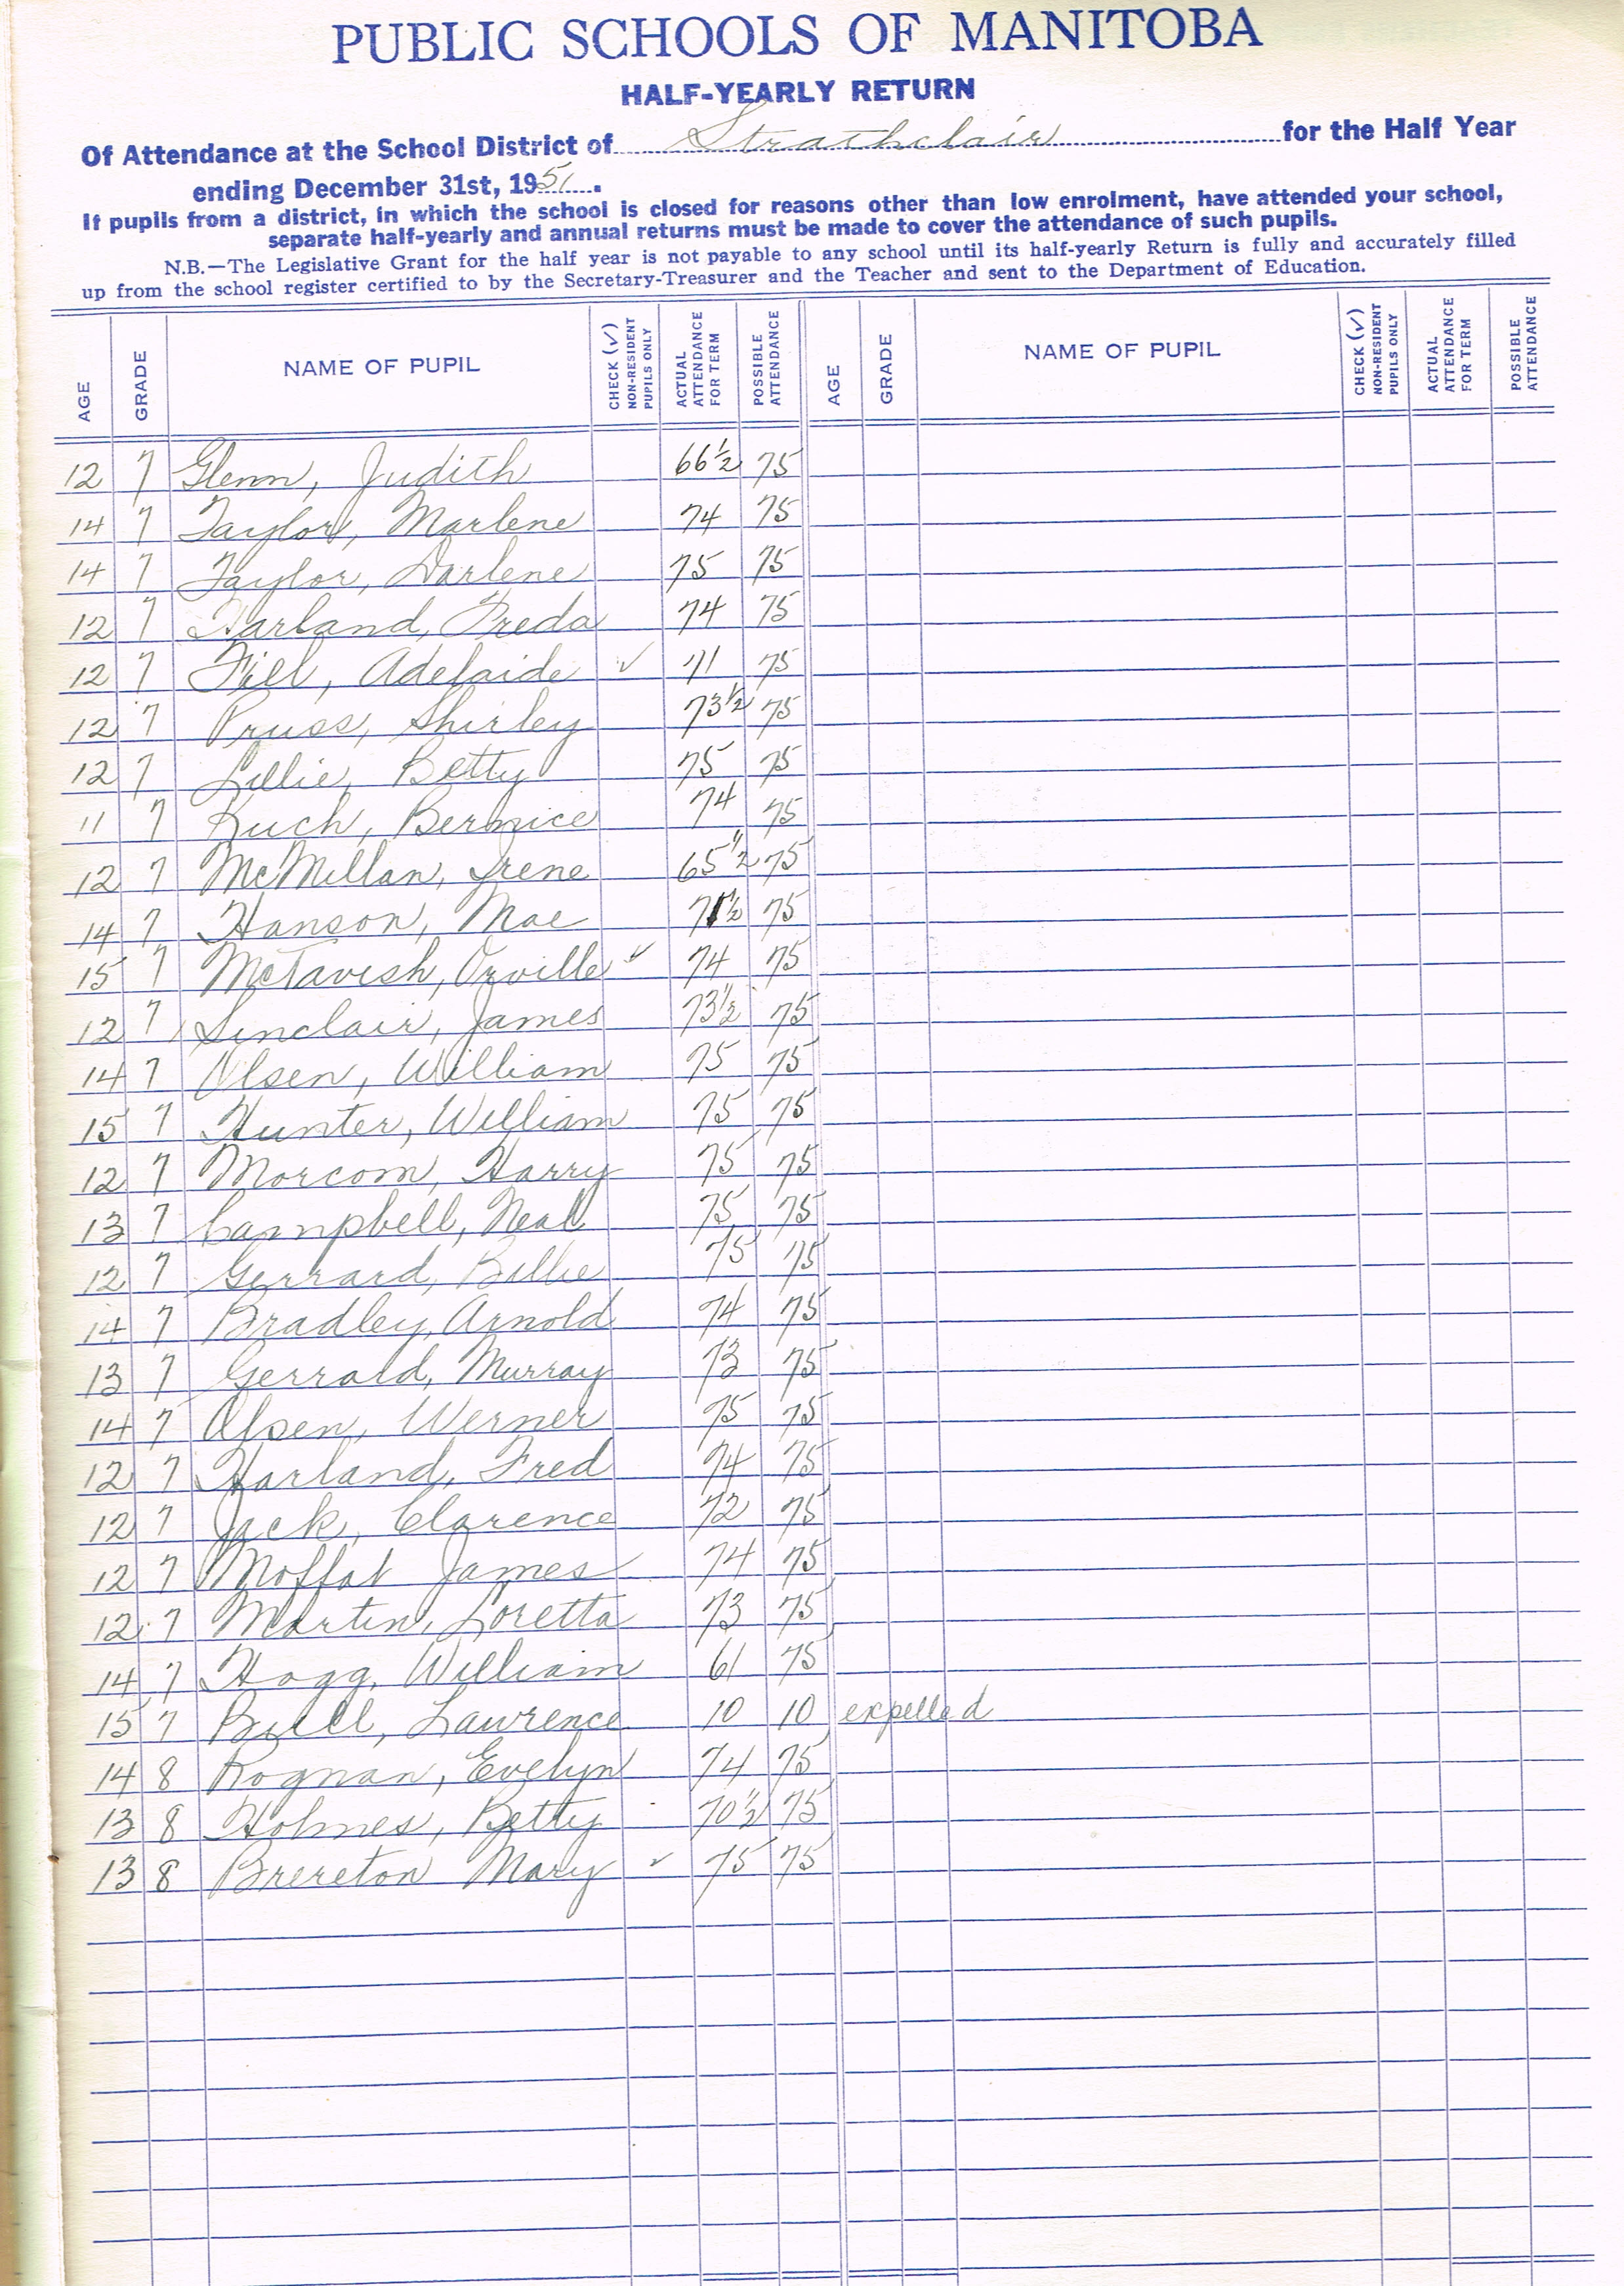 PUBLIC SCHOOLS OF MANITOBA
HALF-YEARLY RETURN
Of Attendance at the School District of Strathclair for the Half Year
ending December 31st, 1951.
If pupils from a district, in which the school is closed for reasons other than low enrolment, have attended your school,
separate half-yearly and annual returns must be made to cover the attendance of such pupils.
N.B.—The Legislative Grant for the half year is not payable to any school until its half-yearly Return is fully and accurately filled
up from the school register certified to by the Secretary-Treasurer and the Teacher and sent to the Department of Education.
AGE GRADE NAME OF PUPIL CHECK (✓) NON-RESIDENT PUPILS ONLY ACTUAL ATTENDANCE FOR TERM POSSIBLE ATTENDANCE AGE GRADE NAME OF PUPIL CHECK (✓) NON-RESIDENT PUPILS ONLY ACTUAL ATTENDANCE FOR TERM POSSIBLE ATTENDANCE
12 7 Glenn, Judith 66½ 75
14 7 Taylor, Marlene 74 75
14 7 Taylor, Darlene 75 75
12 7 Harland, Freda 74 75
12 7 Fiell, Adelaide ✓ 71 75
12 7 Pruss, Shirley 73½ 75
12 7 Lillie, Betty 75 75
11 7 Kuch, Bernice 74 75
12 7 McMillan, Irene 65½ 75
14 7 Hanson, Mae 71½ 75
15 7 McTavish, Orville ✓ 74 75
12 7 Sinclair, James 73½ 75
14 7 Olsen, William 75 75
15 7 Hunter, William 75 75
12 7 Morcom, Harry 75 75
13 7 Campbell, Neal 75 75
12 7 Gerrard, Billie 75 75
14 7 Bradley, Arnold 74 75
13 7 Gerrald, Murray 73 75
14 7 Olsen, Werner 75 75
12 7 Harland, Fred 74 75
12 7 Jack, Clarence 72 75
12 7 Moffat James 74 75
12 7 Martin, Loretta 73 75
14 7 Hogg, William 61 75
15 7 Buell, Lawrence 10 10 expelled
14 8 Rognan, Evelyn 74 75
13 8 Holmes, Betty 70½ 75
13 8 Brereton Mary ✓ 75 75